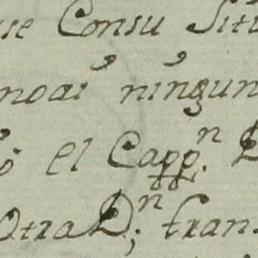 se Consu Situ
noai ningun
o el Capp.n D
Otra Dn; fran.